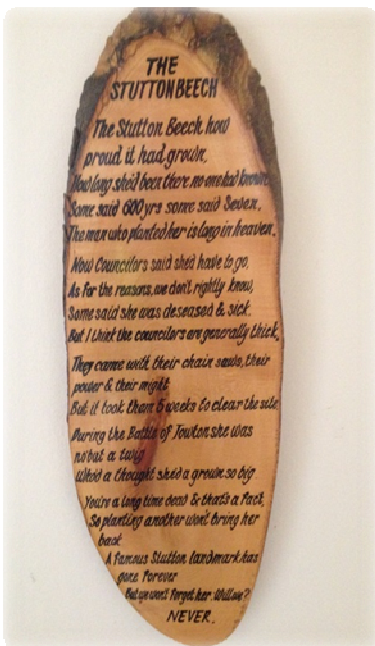 THE
STUTTON BEECH
The Stutton Beech how
proud it had grown,
How long she'd been there no one had known
Some said 600 yrs some said Seven,
The man who planted her is long in heaven.
Now Councilors said she'd have to go,
As for the reasons, we don't rightly know,
Some said she was deseased & sick.
But I think the councilors are generally thick,
They came with their chain saws, their
power & their might
But it took them 5 weeks to clear the site.
During the Battle of Towton she was
no but a twig
Who'd a thought she'd a grown so big
You're a long time dead & that's a fact,
So planting another won't bring her
back
A famous Stutton landmark has
gone forever
But we won't forget her. Will we?
NEVER.